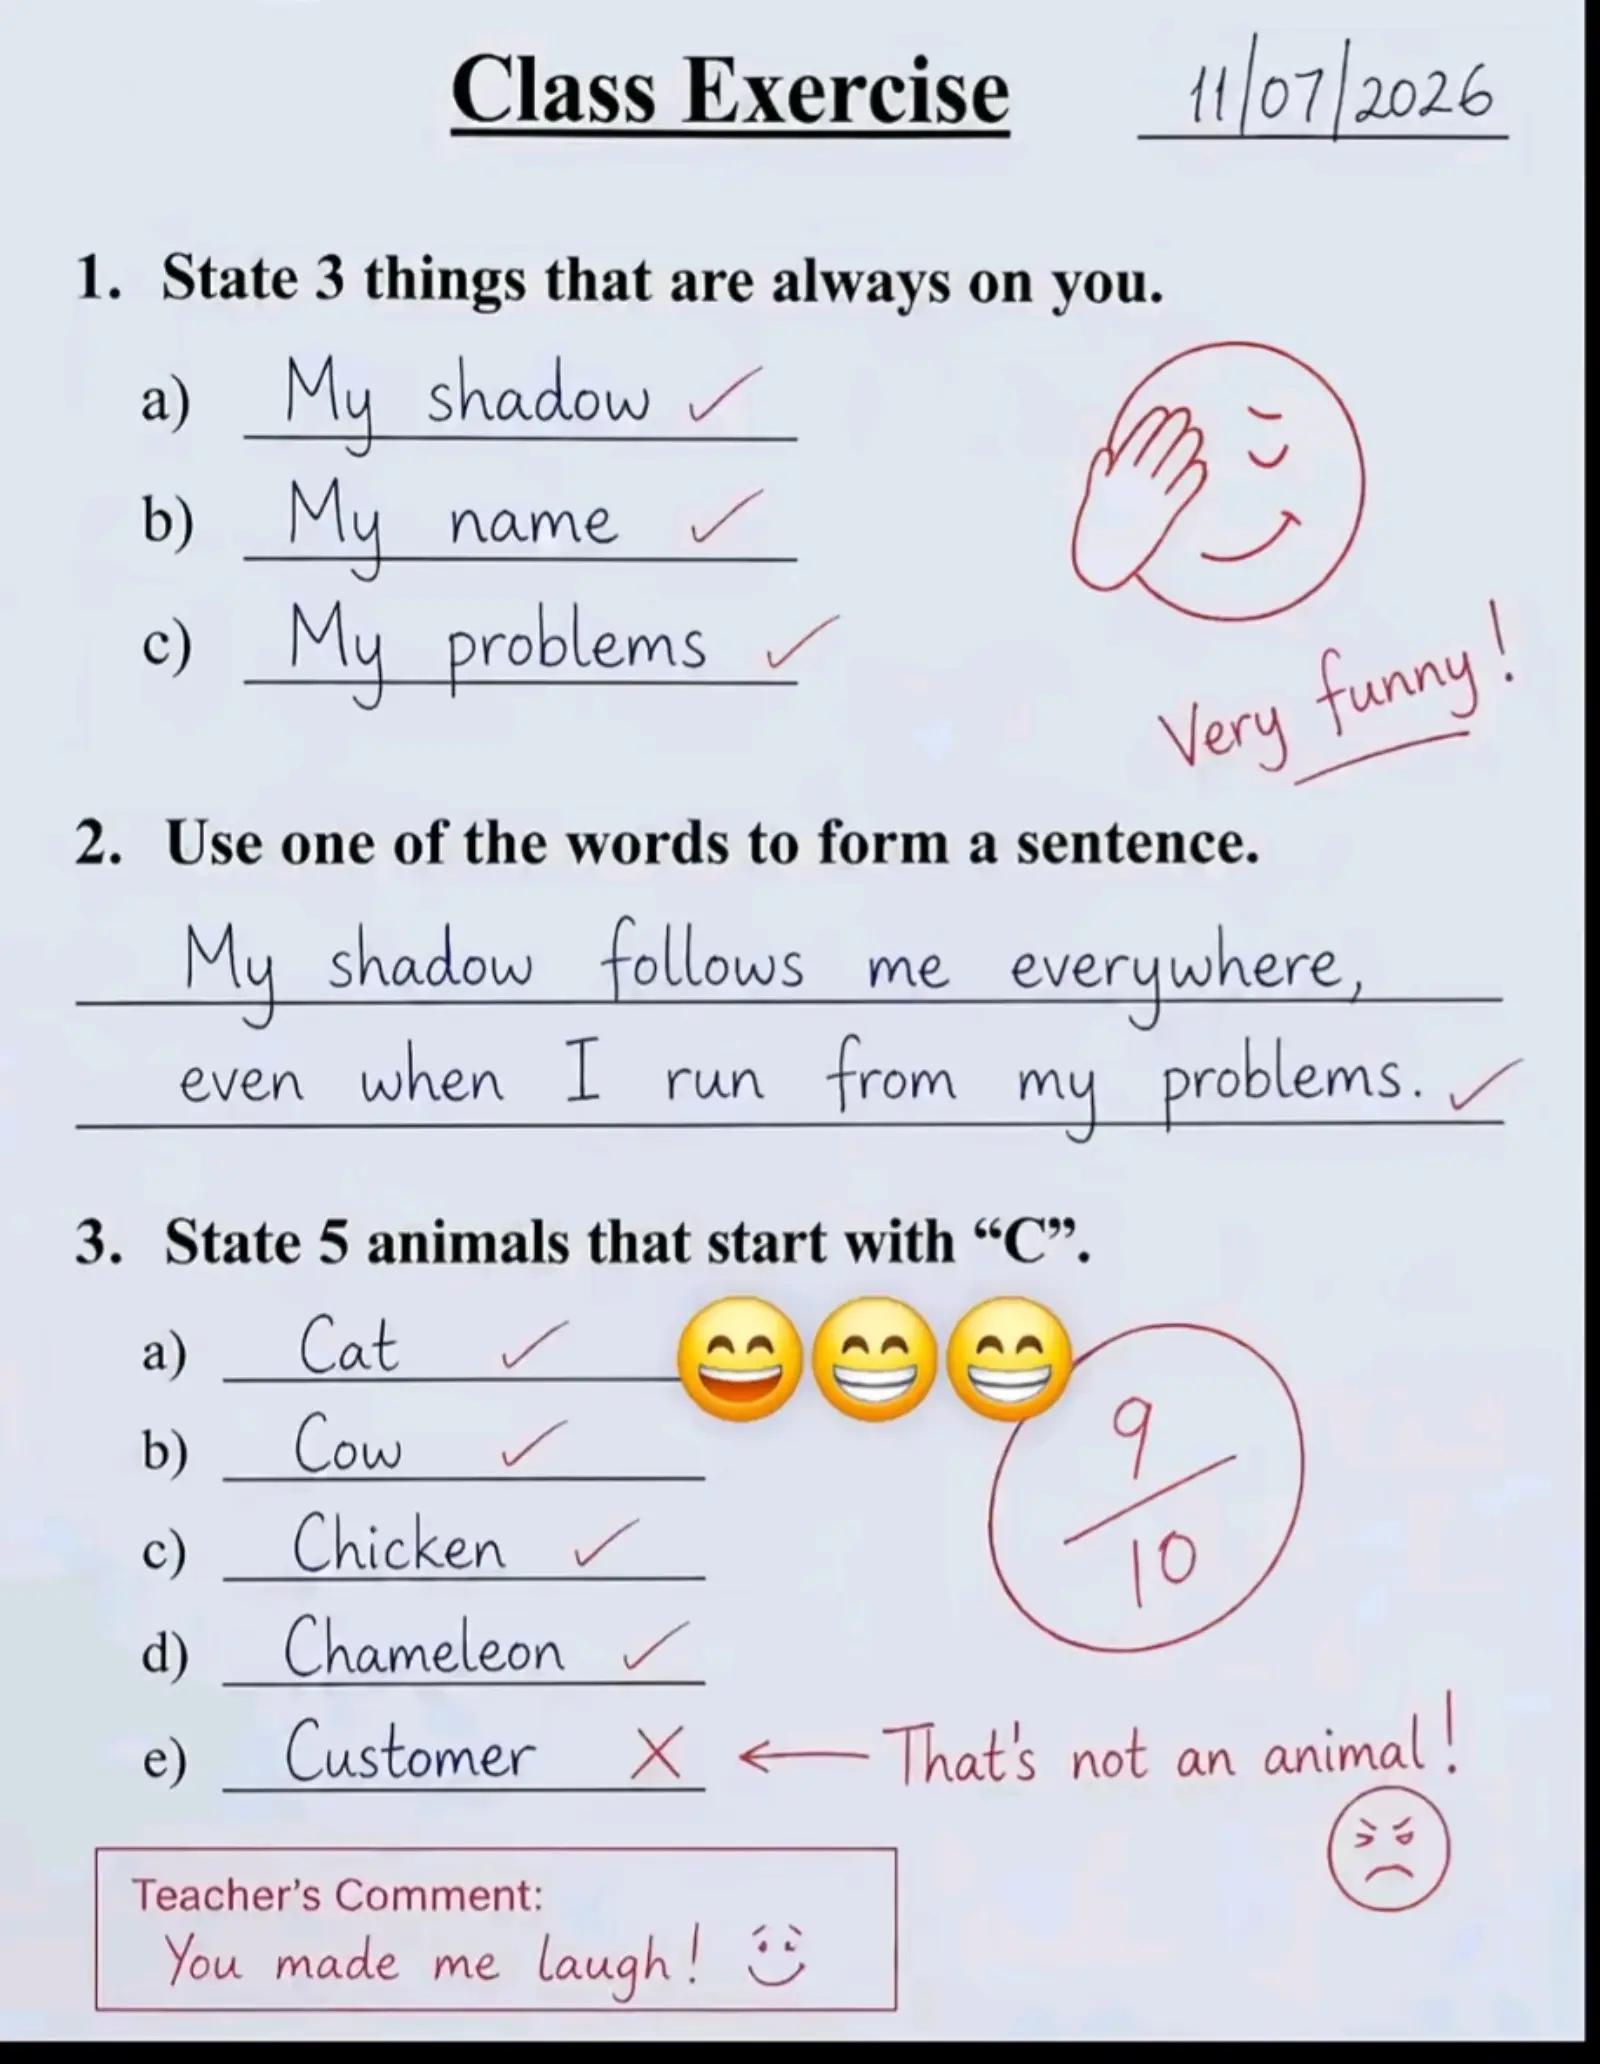 Class Exercise 11/07/2026
1. State 3 things that are always on you.
a) My shadow ✓
b) My name ✓
c) My problems ✓
Very funny!
2. Use one of the words to form a sentence.
My shadow follows me everywhere,
even when I run from my problems. ✓
3. State 5 animals that start with “C”.
a) Cat ✓
b) Cow ✓
c) Chicken ✓
d) Chameleon ✓
9/10
e) Customer X ← That's not an animal!
Teacher's Comment:
You made me laugh!